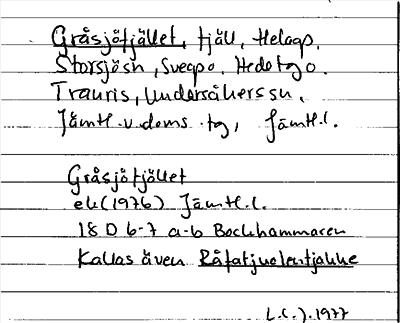 Gråsjöfjället, fjäll, Helags,
Storsjösn, Svegs o. Hede tg o.
Trauris, Undersåkers sn,
Jämtl. v. doms. tg, Jämtl. l.
Gråsjöfjället
ek (1976) Jämtl. l.
18 D 6-7 a-b Bockhammaren
Kallas även
L.L.). 1977